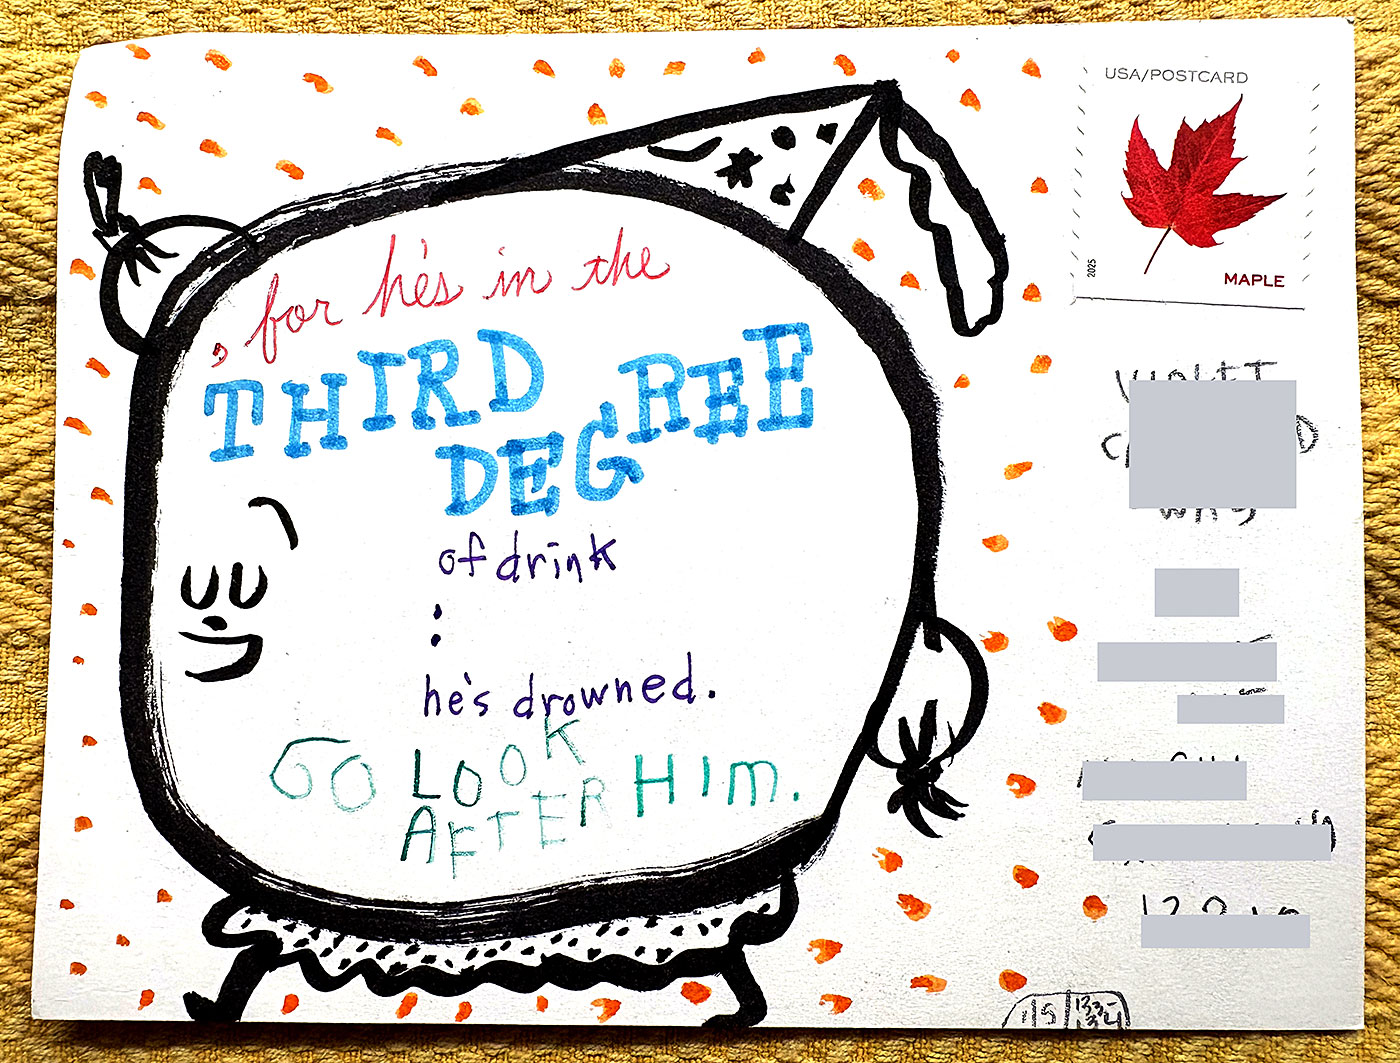 , for he's in the
THIRD
DEGREE
of drink
:
he's drowned.
GO LOOK
AFTER HIM.
USA/POSTCARD
2025
MAPLE
VIOLET
WAY
1/5